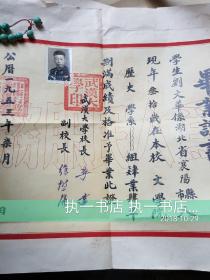 畢業證書
學生劉文華係湖北省襄陽縣市
現年叁拾歲在本校文學
歷史學系 組肄業
期滿成績及格准予畢業此證
武漢大學校長
副校長
公曆一九五三年柒月 日
执一书店 执一书店 2018-10-29